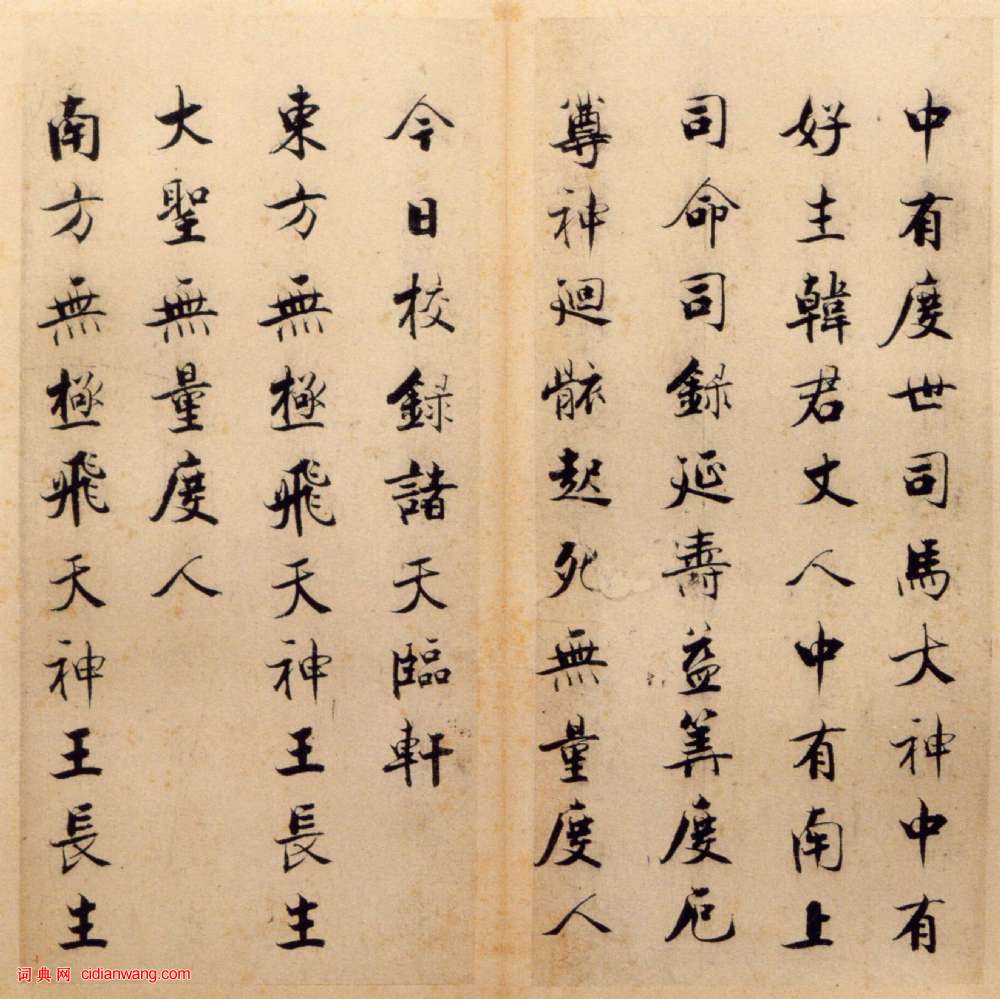 中有度世司馬大神中有
好生韓君丈人中有南上
司命司録延壽益筭度厄
尊神迴骸起死無量度人
今日校録諸天臨軒
東方無極飛天神王長生
大聖無量度人
南方無極飛天神王長生
词典网 cidianwang.com